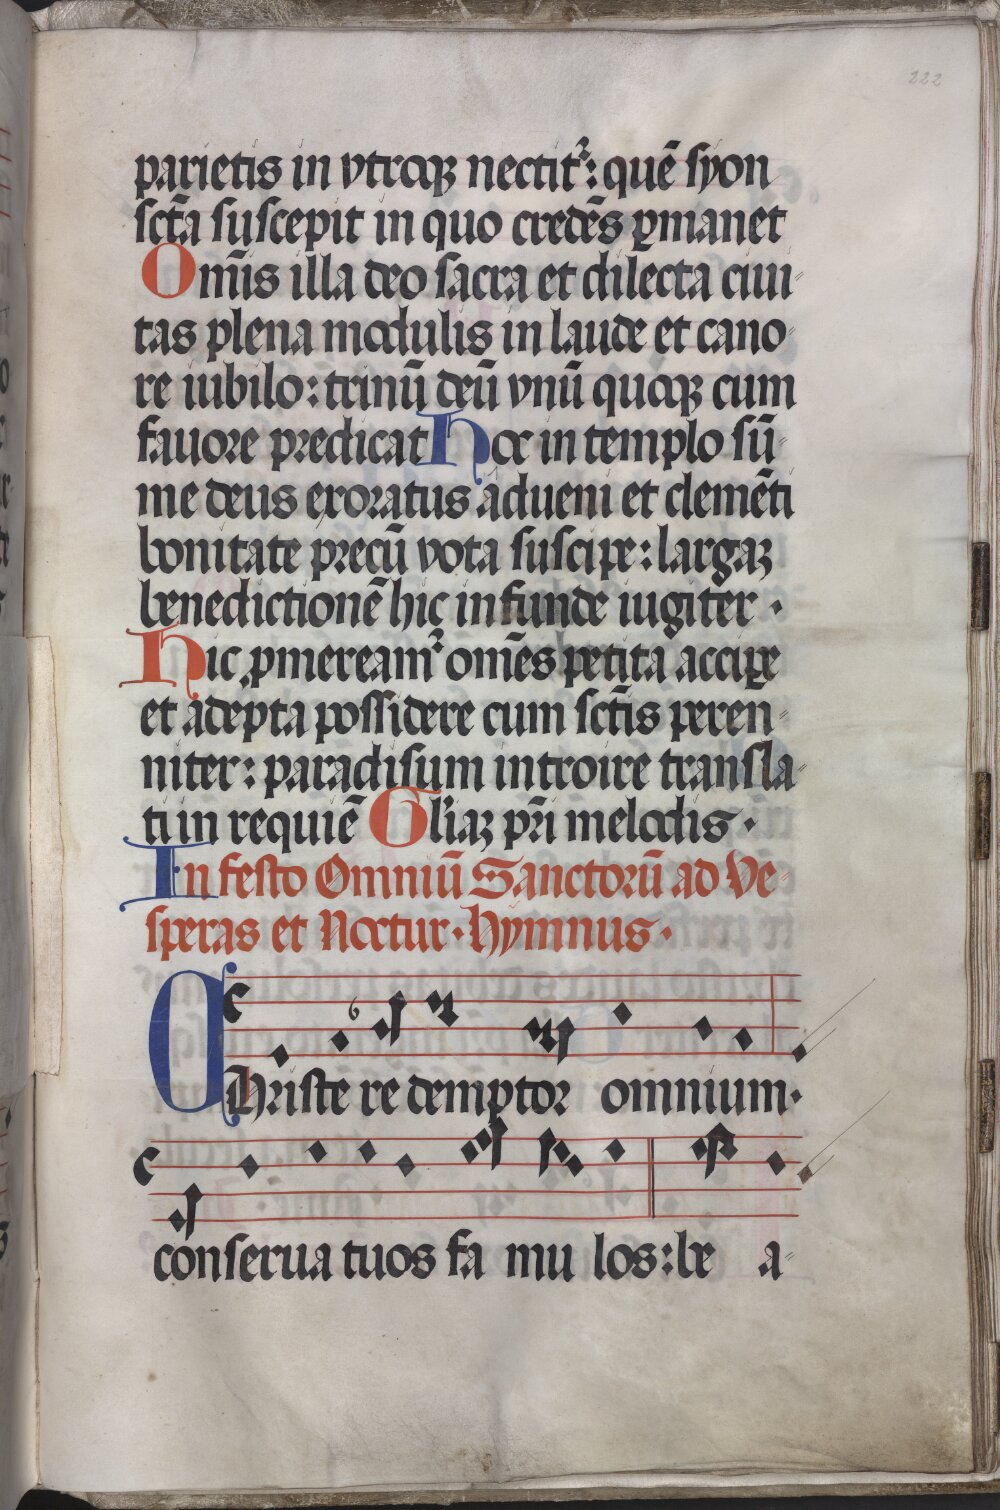 222
parietis in vtroqꝫ nectit᷑: quē syon
sctā suscepit in quo credēs ꝑmanet
Om̄is illa deo sacra et dilecta ciui-
tas plena modulis in laude et cano-
re iubilo: trinū deū vnū quoqꝫ cum
fauore predicat Hoc in templo sū-
me deus exoratus adueni et clemēti
bonitate precū vota suscipe: largaꝫ
benedictionē hic infunde iugiter ·
Hic ꝓmeream᷑ om̄es petita accipe
et adepta possidere cum sctīs peren-
niter: paradisum introire transla-
ti in requiē Gl'iaꝫ pr̄i melodis ·
In festo Omniū Sanctorū ad Ve-
speras et Noctur · Hymnus ·
CHriste re demptor omnium ·
conserua tuos fa mu los: be a-